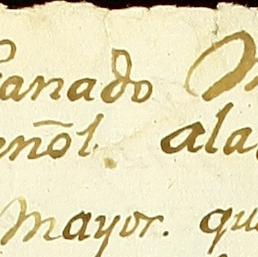 anado
eñol. ala
Mayor. qu